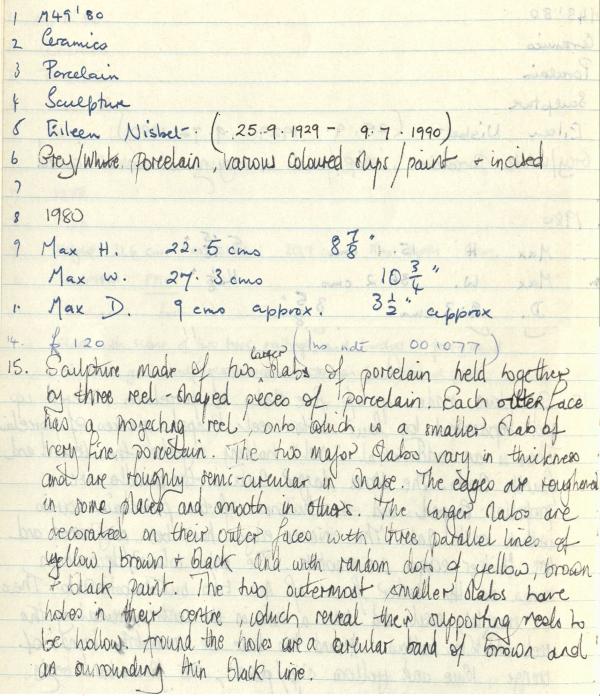 1 M49'80
2 Ceramics
3 Porcelain
4 Sculpture
5 Eileen Nisbet. (25.9.1929 - 9.7.1990)
6 Grey/white porcelain, various coloured slips/paint + incised
7
8 1980
9 Max H. 22.5 cms 8 7/8"
Max W. 27.3 cms 10 3/4"
11 Max D. 9 cms approx. 3 1/2" approx
14. £120 (Ins note 001077)
15. Sculpture made of two larger slabs of porcelain held together
by three reel-shaped pieces of porcelain. Each outer face
has a projecting reel onto which is a smaller slab of
very fine porcelain. The two major slabs vary in thickness
and are roughly semi-circular in shape. The edges are roughened
in some places and smooth in others. The larger slabs are
decorated on their outer faces with three parallel lines of
yellow, brown + black and with random dots of yellow, brown
+ black paint. The two outermost smaller slabs have
holes in their centre, which reveal their supporting reels to
be hollow. Around the holes are a circular band of brown and
an surrounding thin black line.